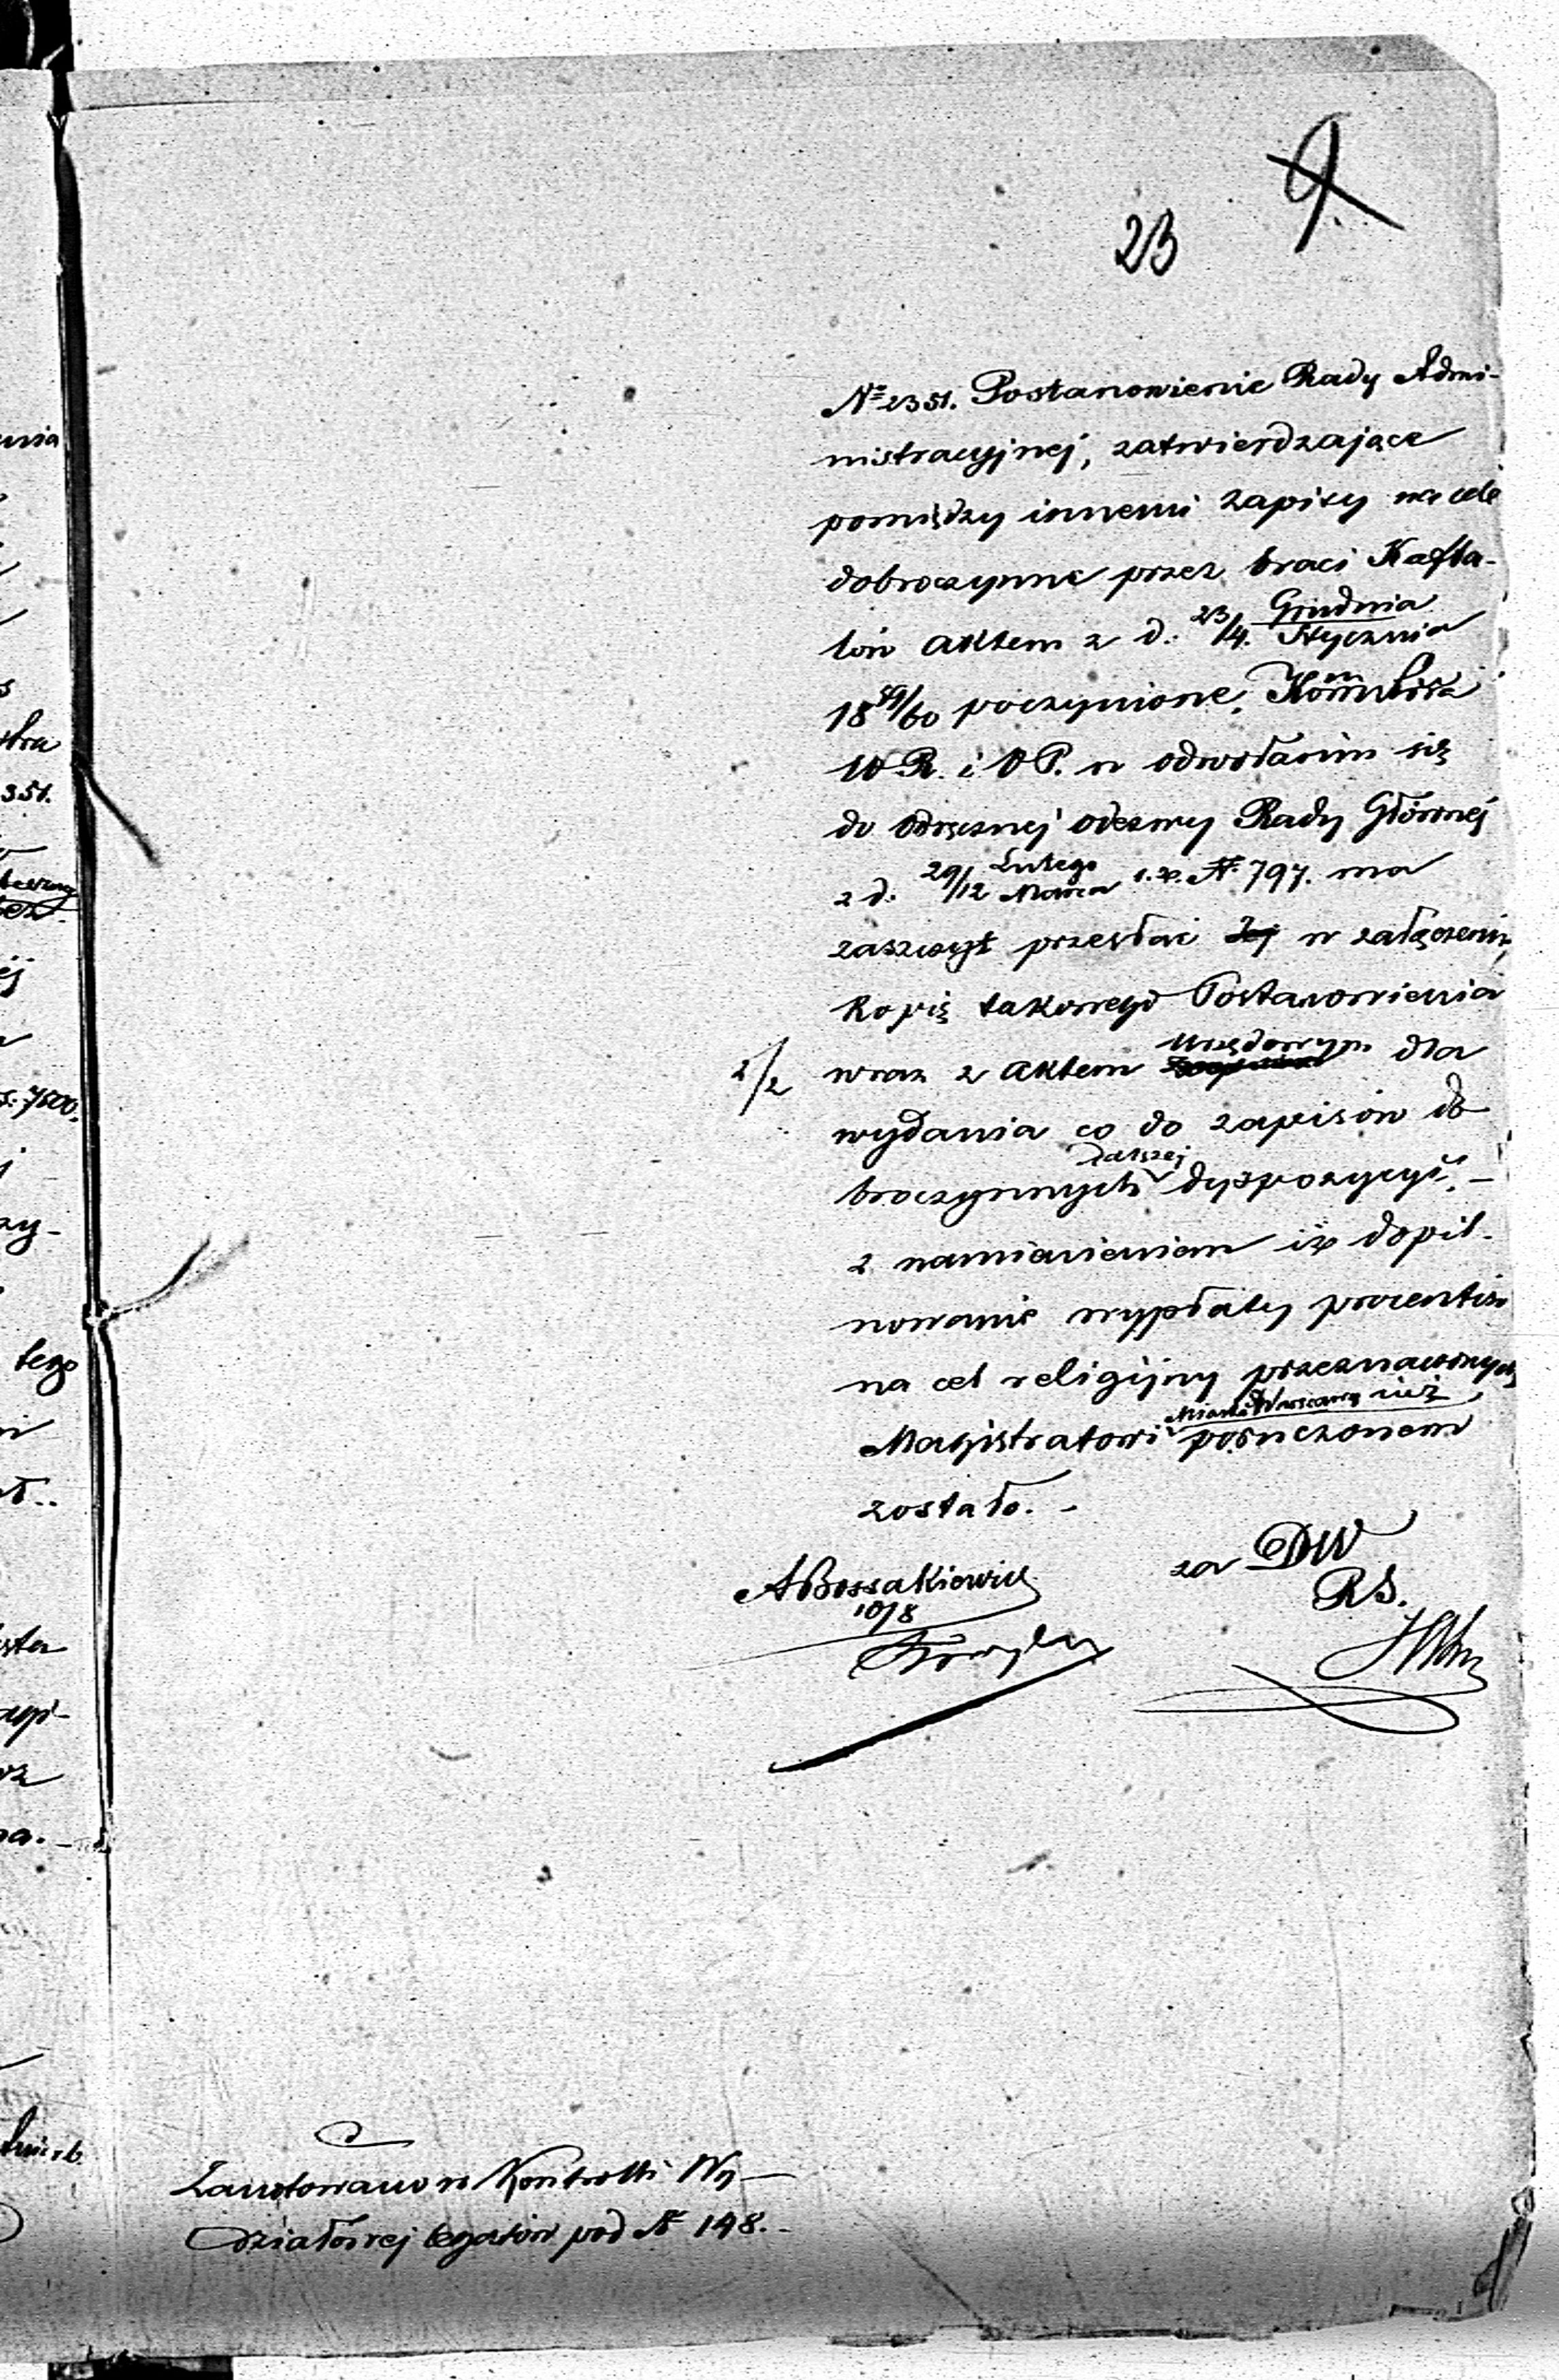 9
23
№ 2351. Postanowienie Rady Admi-
nistracyjnej, zatwierdzające
pomiędzy innemi zapisy na cele
dobroczynne przez braci Kafta-
lów aktem z d. 23/4. Grudnia Stycznia
18 59/60 poczynione, Kommissa
W R. i D P. w odwołaniu się
do odręcznej odezwy Rady Głównej
z d. 29/12 Lutego Marca r. z. № 797. ma
zaszczyt przesłać Jej w załączeniu,
Kopię takowego Postanowienia
2/2 wraz z aktem Urzędowym dla
wydania co do zapisów do
broczynnych dalszej dyspozycyi, -
z namienieniem iż dopil-
nowanie wypłaty procentów
na cel religijny przeznaczonych
Magistratowi Miasta Warszawy już poruczonem
zostało. -
za DW
RS.
ABossakiewicz
10/8
Zanotowano w Kontrolli Wy-
działowej legatów pod № 148. -